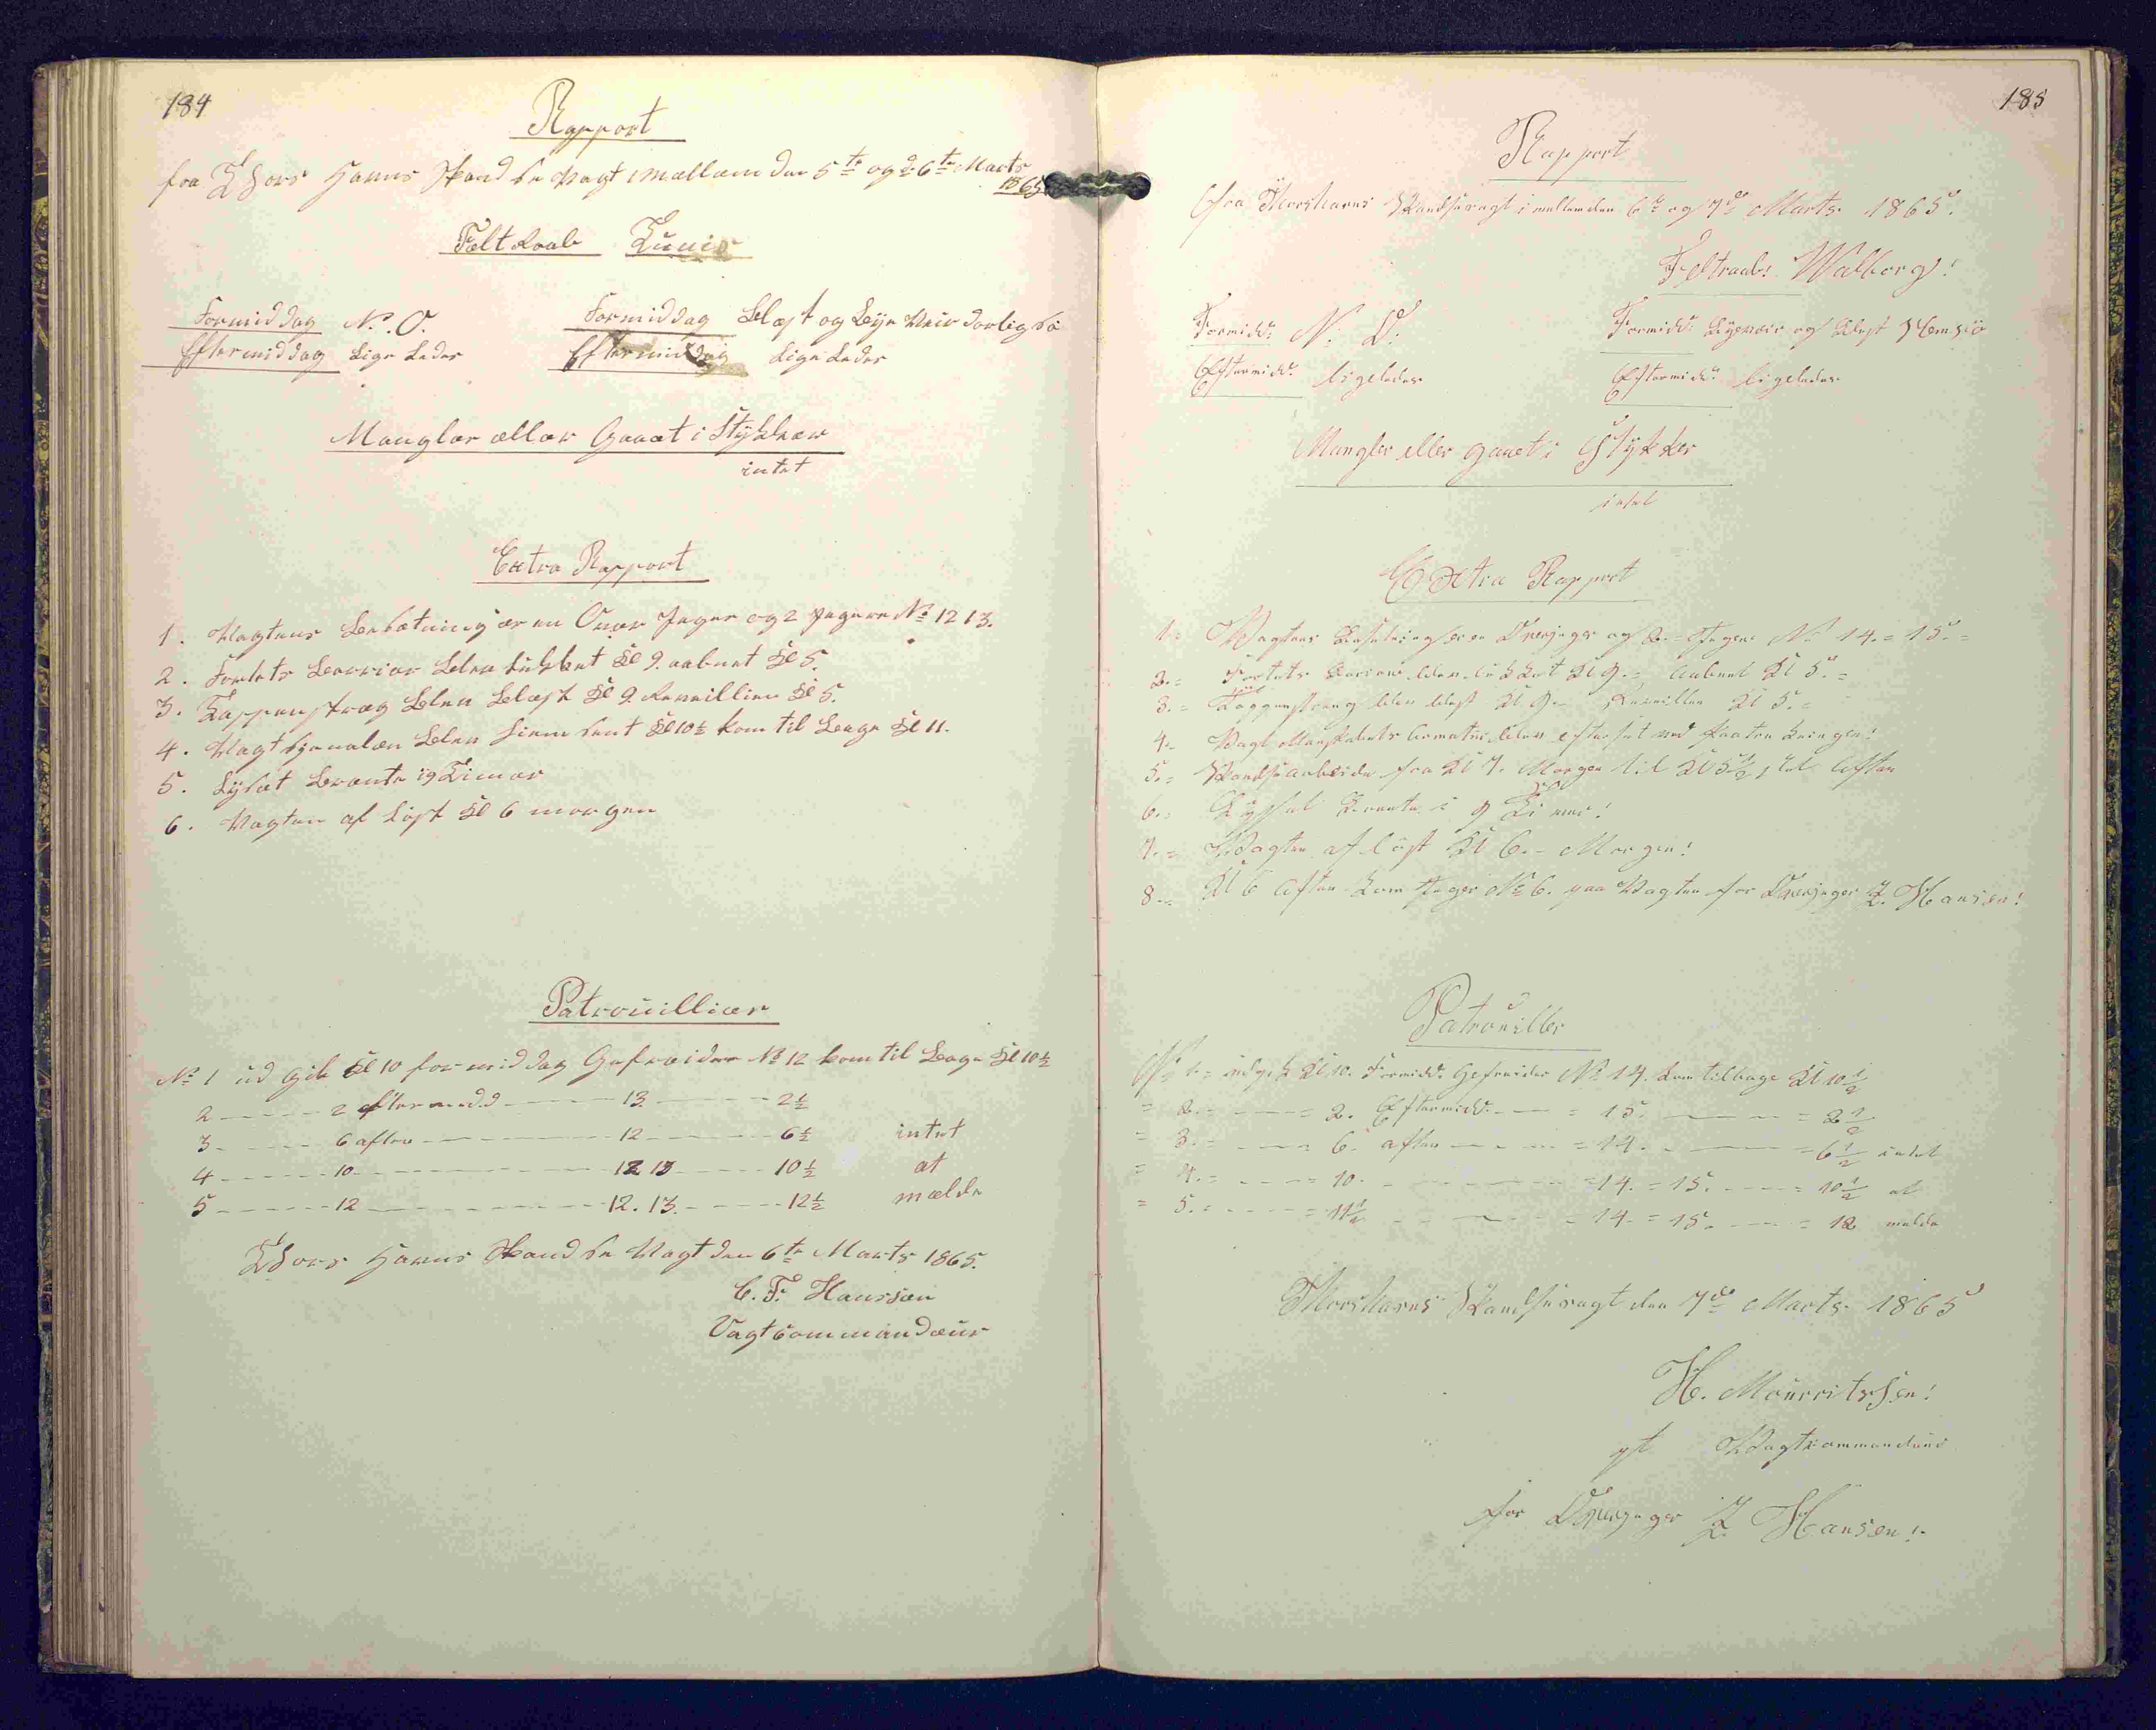 184
Rapport
fra Thors Havns Skandse Vagt imællem den 5te og d: 6te Marts
1865
Fælt Raab Tunis
Formiddag N. O. Formiddag Blæst og Bÿe Veir Dorlig Sø
Eftermiddag Lige Ledes Eftermiddag Lige Ledes
Mangler æller Gaaæt i Stÿkker
intet
Extra Rapport
1. Vagtens Besætning er en Over Jæger og 2 Jægere No 12 13.
2. Fortets Barrier Blev Lukket Kl 9. aabnet Kl 5.
3. Tappenstræg Blev Blæst Kl 9. Reveillien Kl 5.
4. Vagt Sjenalen Blev Hiem sent Kl 10½ kom til Bage Kl 11.
5. Lÿset Brænte i 9 Timer
6. Vagten af Løst Kl 6 morgen
Patrouillier
No 1 ud gik Kl 10 formiddag Gefreider No 12 kom til Bage Kl 10½
2 2 efter midd 13 2½
3 6 aften 12 6½ intet
4 10 12 13 10½ at
5 12 12. 13. 12½ mælde
Thors Havns Skand se Vagt den 6te Marts 1865.
C. F. Hanssen
Vagtcommandeur
185
Rapport
fra Thorshavns Skandsevagt imellem den 6te og 7de Marts 1865.
Feltraab: Walborg!
Formidd: N. O. Formidd: Bÿeveir og Blest Slem Siö
Eftermidd: ligeledes Eftermidd: ligeledes
Mangler eller gaaet i Stÿkker
intet
Extra Rapport
1. Vagtens Besetning er en Overjæger og 2. Jægere No 14. = 15. =
2. = Fortets Bariere blev lukket Kl 9. = aabnet Kl 5. =
3. = Tappenstreng blev blest Kl 9. Reveillen Kl 5. =
4. Vagt Manskabets Armatur blev efterset ved
5. = Skandsearbeide fra Kl 7. Morgen til Kl 5½ Aften
6. = Lÿset Brente i 9 Timer!
7. = Vagten af løst Kl 6. Morgen!
8. Kl 6 Aften kom Jæger No 6. paa Vagten for Overjæger Z. Hansen!
Patrouiller
No 1. = udgik Kl 10. Formidd: Gefreider No 14. kom tilbage Kl 10½
= 2. = 2. Eftermidd: = 15. = 2½
= 3. = 6. aften = 14. = 6½ intet
= 4. = 10. = 14. = 15. = 10½ at
= 5. = 11½ 14. = 15. = 12 melde
Thorshavns Skandsevagt den 7de Marts 1865
H. Mourritsen!
pt Vagtcommandeur
for Overjæger Z. Hansen!